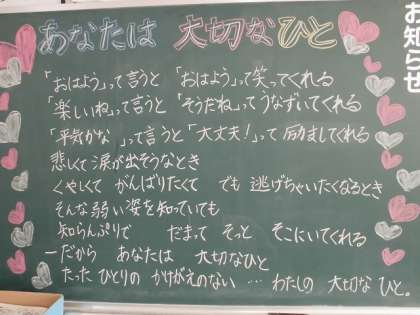 お知らせ
あなたは 大切なひと
「おはよう」って言うと 「おはよう」って笑ってくれる
「楽しいね」って言うと 「そうだね」ってうなずいてくれる
「平気かな」って言うと 「大丈夫!」って励ましてくれる
悲しくて 涙が出そうなとき
くやしくて がんばりたくて でも 逃げちゃいたくなるとき
そんな弱い姿を知っていても
知らんぷりで だまって そっと そこにいてくれる
―だから あなたは 大切なひと
たった ひとりの かけがえのない … わたしの 大切な ひと。